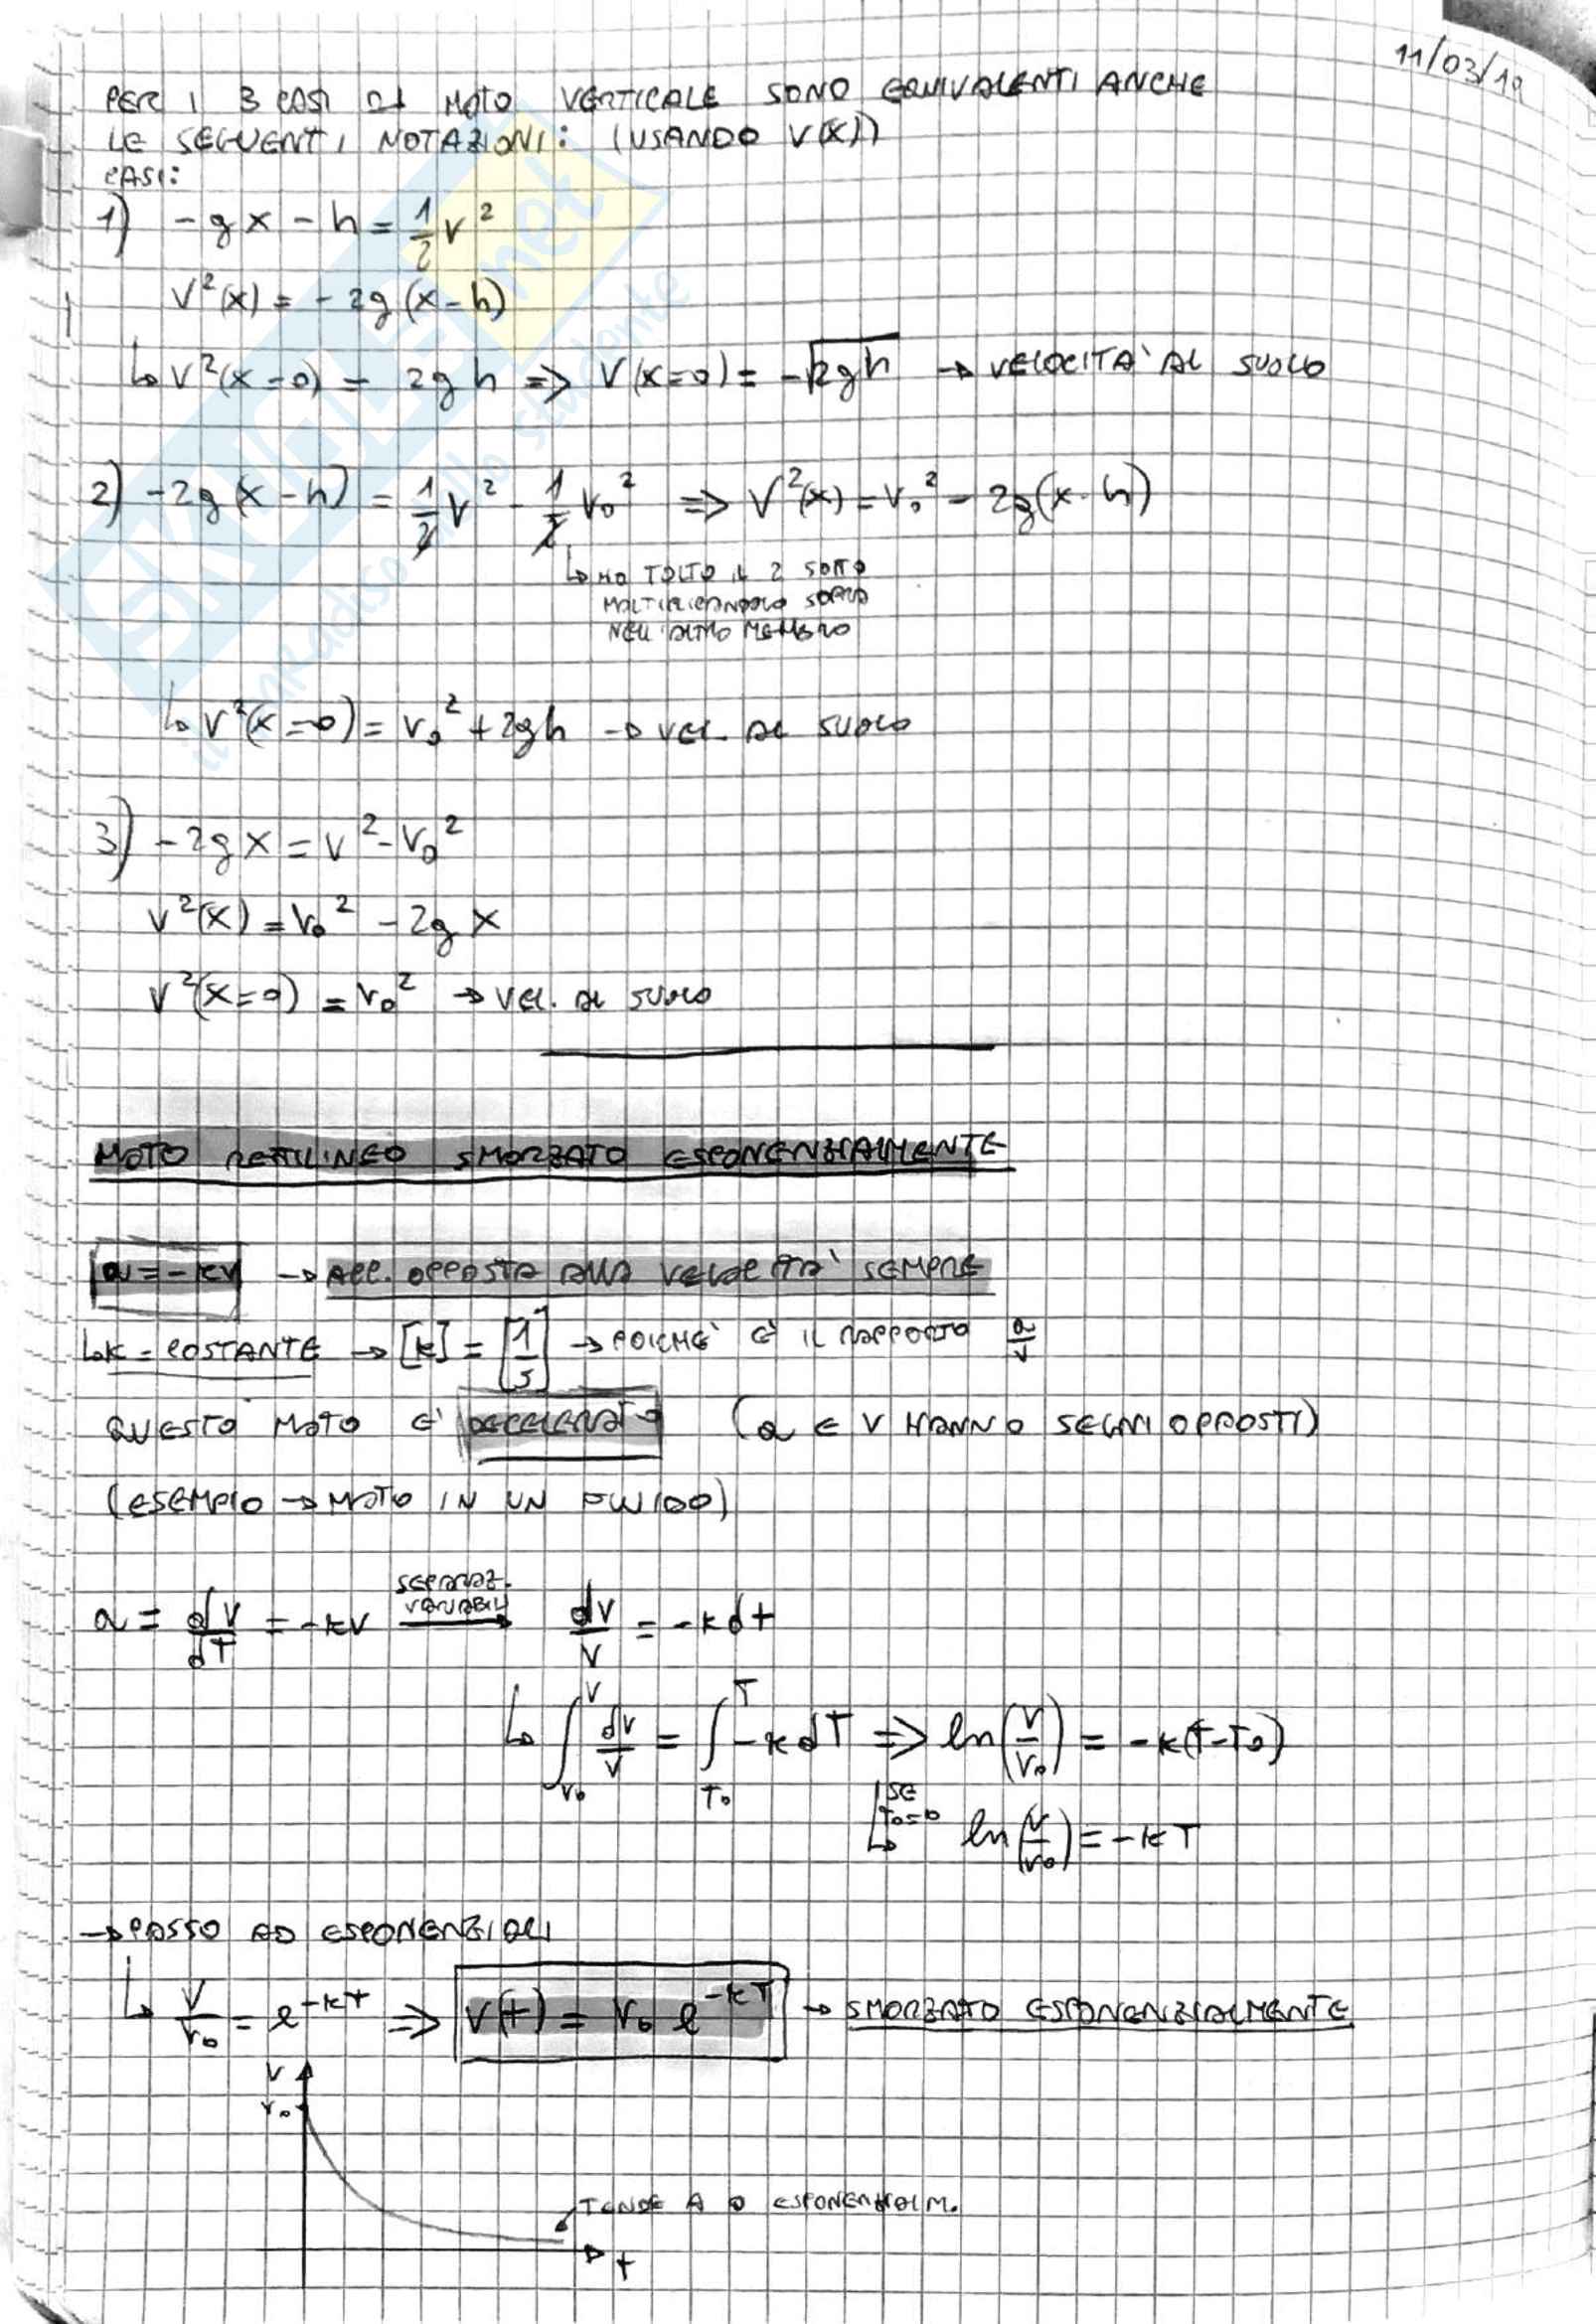 11/03/19
PER I 3 CASI DI MOTO VERTICALE SONO EQUIVALENTI ANCHE
LE SEGUENTI NOTAZIONI: (USANDO V(X))
CASI:
1) -gx-h = 1/2 v²
v²(x) = -2g(x-h)
↳ v²(x=0) = 2gh => v(x=0) = -√2gh → VELOCITA' AL SUOLO
2) -2g(x-h) = 1/2 v² - 1/2 v₀² => v²(x) = v₀² - 2g(x-h)
↳ HO TOLTO IL 2 SOTTO
MOLTIPLICANDOLO SOPRA
NELL'ALTRO MEMBRO
↳ v²(x=0) = v₀² + 2gh → VEL. AL SUOLO
3) -2gx = v² - v₀²
v²(x) = v₀² - 2gx
v²(x=0) = v₀² → VEL. AL SUOLO
MOTO RETTILINEO SMORZATO ESPONENZIALMENTE
a = -kv → ACC. OPPOSTA ALLA VELOCITA' SEMPRE
↳ k = COSTANTE → [k] = [1/s] → POICHE' E' IL RAPPORTO a/v
QUESTO MOTO E' DECELERATO (a E V HANNO SEGNI OPPOSTI)
(ESEMPIO → MOTO IN UN FLUIDO)
a = dv/dT = -kv SEPARAZ. VARIABILI → dv/v = -kdt
↳ ∫_{v₀}^{v} dv/v = ∫_{T₀}^{T} -kdT => ln(v/v₀) = -k(T-T₀)
SE T₀=0 ↳ ln(v/v₀) = -kT
→ PASSO AD ESPONENZIALI
↳ v/v₀ = e^{-kt} => v(t) = v₀ e^{-kT} → SMORZATO ESPONENZIALMENTE
V
v₀
TENDE A 0 ESPONENZIALM.
t
SKUOLA.net
il paradiso dello studente